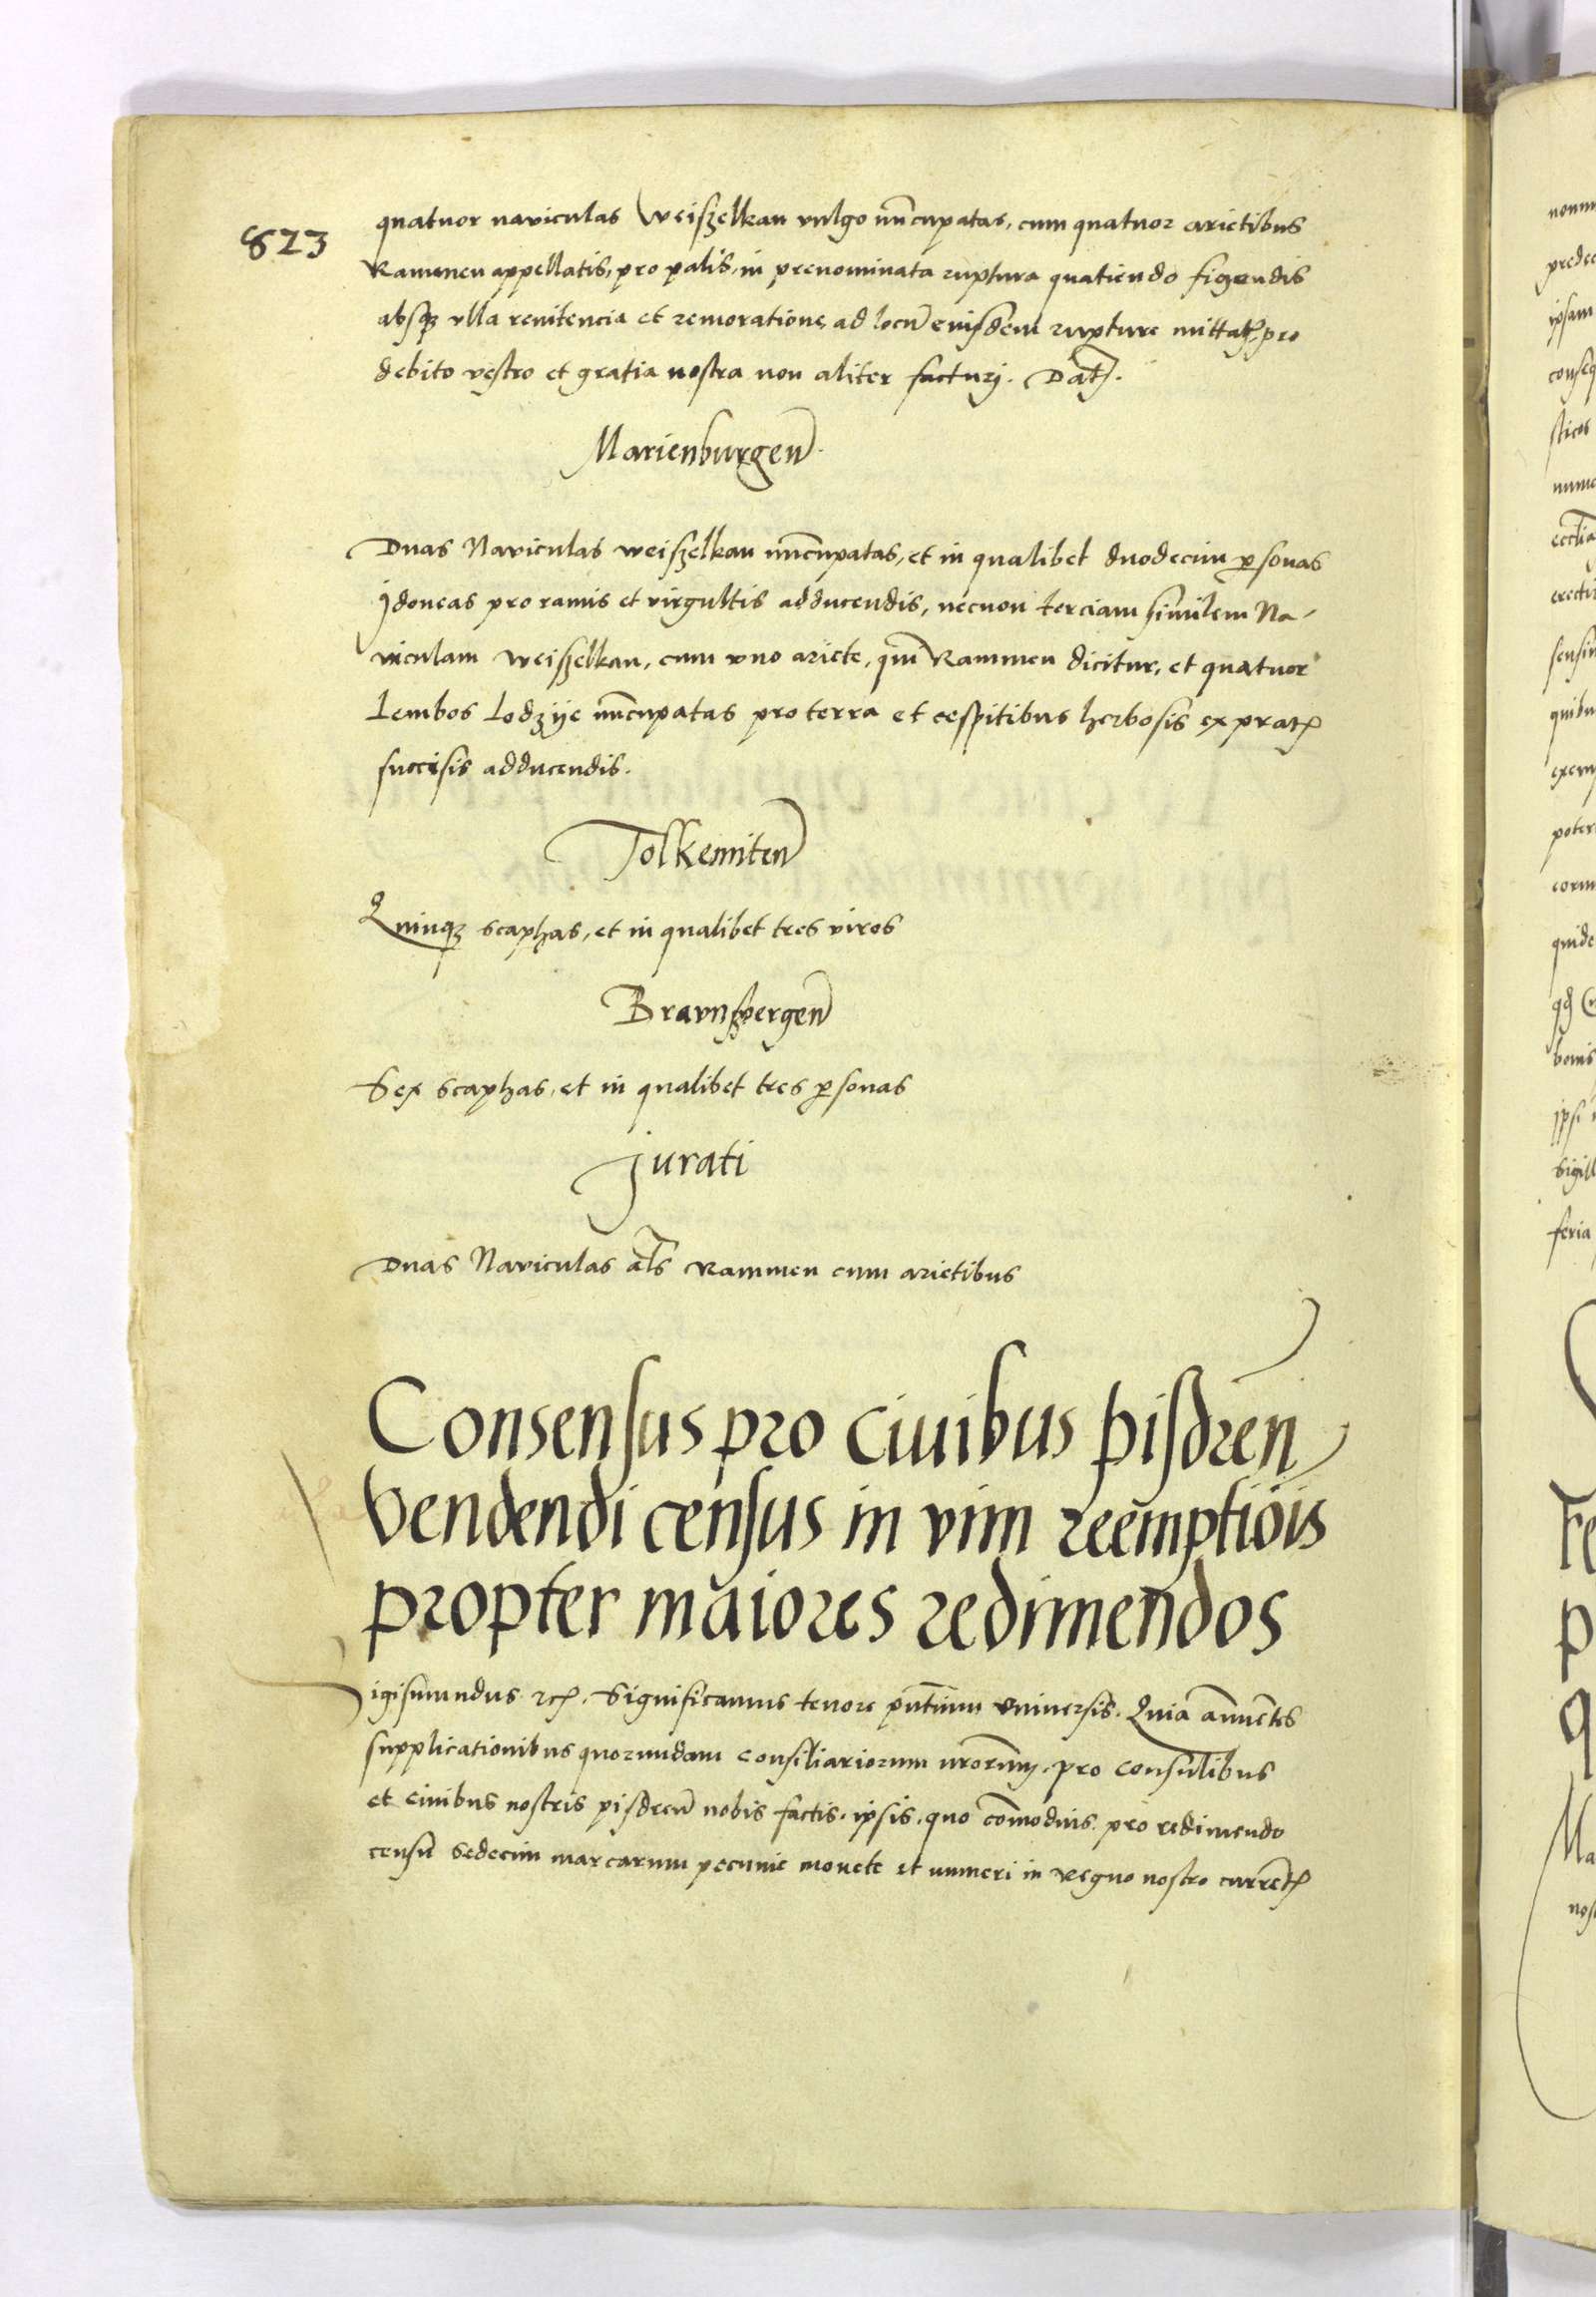 823
quatuor naviculas Weiszelkan vulgo nũcupatas, cum quatuor arietibus
Rammen appellatis, pro palis, in prenominata ruptura quatiendo figendis
absqȝ vlla renitencia et remoratione, ad locũ eiusdem rupture mittatꝭ, pro
debito vestro et gratia nostra non aliter facturj. Datꝭ.
Marienburgeñ.
Duas Naviculas weiszelkan nũcupatas, et in qualibet duodecim ꝑsonas
Jdoneas pro ramis et virgultis adducendis, necnon terciam similem Na-
viculam weiszelkan, cum vno ariete, qui Rammen dicitur, et quatuor
Lembos Lodzije nũcupatas pro terra et cespitibus herbosis ex pratꝭ
succisis adducendis.
Tolkemiteñ
Quinqȝ scaphas, et in qualibet tres viros
Bravnszbergeñ
Sex scaphas, et in qualibet tres ꝑsonas
Jurati
Duas Naviculas al̃s Rammen cum arietibus
Consensus pro ciuibus pisdreñ
Vendendi census in vim reemptiõis
propter maiores redimendos
Sigismundus ꝛcꝭ. Significamus tenore pñtium vniversis. Quia annuẽtes
supplicationibus quorundam consiliariorum nr̃orum, pro consulibus
et ciuibus nostris pisdreñ nobis factis, ipsis, quo cõmodius pro redimendo
censu sedecim marcarum pecunie monete et numeri in Regno nostro currẽtꝭ